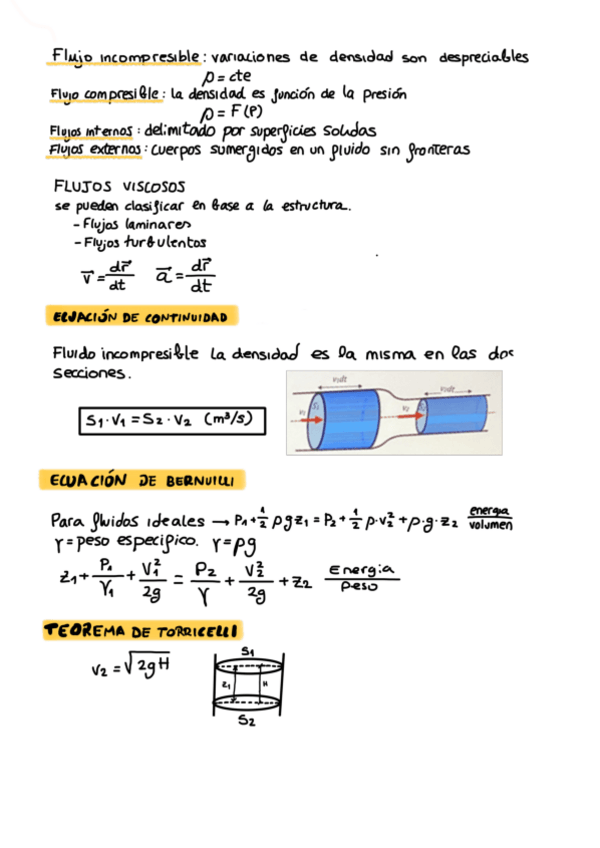 Flujo incompresible: variaciones de densidad son despreciables
ρ = cte
Flujo compresible: la densidad es función de la presión
ρ = F(P)
Flujos internos: delimitado por superficies solidas
Flujos externos: cuerpos sumergidos en un fluido sin fronteras
FLUJOS VISCOSOS
se pueden clasificar en base a la estructura.
- Flujos laminares
- Flujos turbulentos
v⃗ = dr⃗/dt a⃗ = dr⃗/dt
ECUACIÓN DE CONTINUIDAD
Fluido incompresible la densidad es la misma en las dos
secciones.
S1 · V1 = S2 · V2 (m³/s)
v₁dt v₂dt
v₁ S₁ v₂ S₂
ECUACIÓN DE BERNUILLI
Para fluidos ideales → P1 + 1/2 ρ g z1 = P2 + 1/2 ρ · v₂² + ρ · g · z2 energia/volumen
γ = peso especifico. γ = ρg
z1 + P1/γ1 + V1²/2g = P2/γ + V2²/2g + z2 Energia/peso
TEOREMA DE TORRICELLI
v2 = √2gH
S1
z1 H
S2